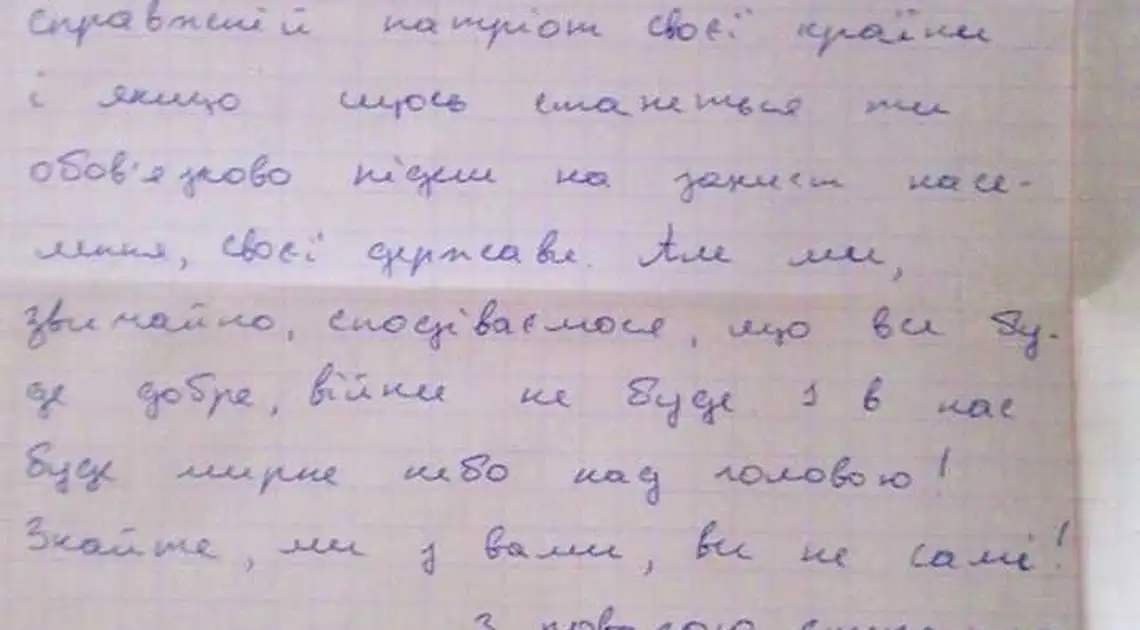 справжній патріот своєї країни
і якщо щось станеться ти
обов'язково підеш на захист насе-
лення, своєї держави. Але ми,
звичайно, сподіваємося, що все бу-
де добре, війни не буде і в нас
буде мирне небо над головою!
Знайте, ми з вами, ви не самі!
З повагою